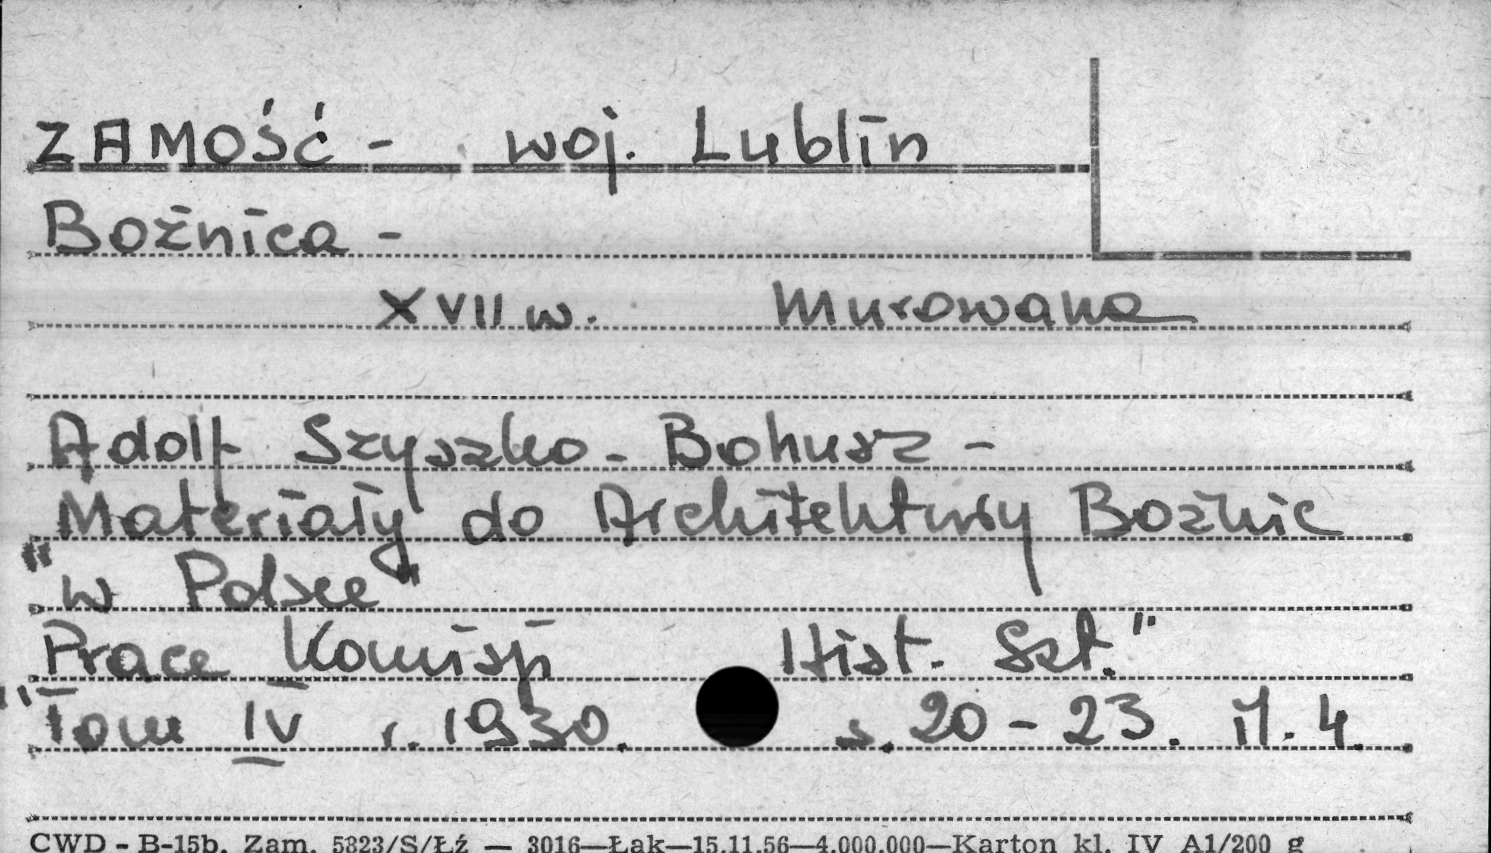 ZAMOŚĆ - woj. Lublin
Bożnica -
XVII w. Murowana
Adolf Szyszko-Bohusz -
Materiały do Architektury Bożnic
"w Polsce"
Prace Komisji Hist. Szt."
"Tom IV r. 1930. s. 20-23. il. 4.
CWD - B-15b. Zam. 5823/S/Łź — 3016—Łak—15.11.56—4.000.000—Karton kl. IV A1/200 g